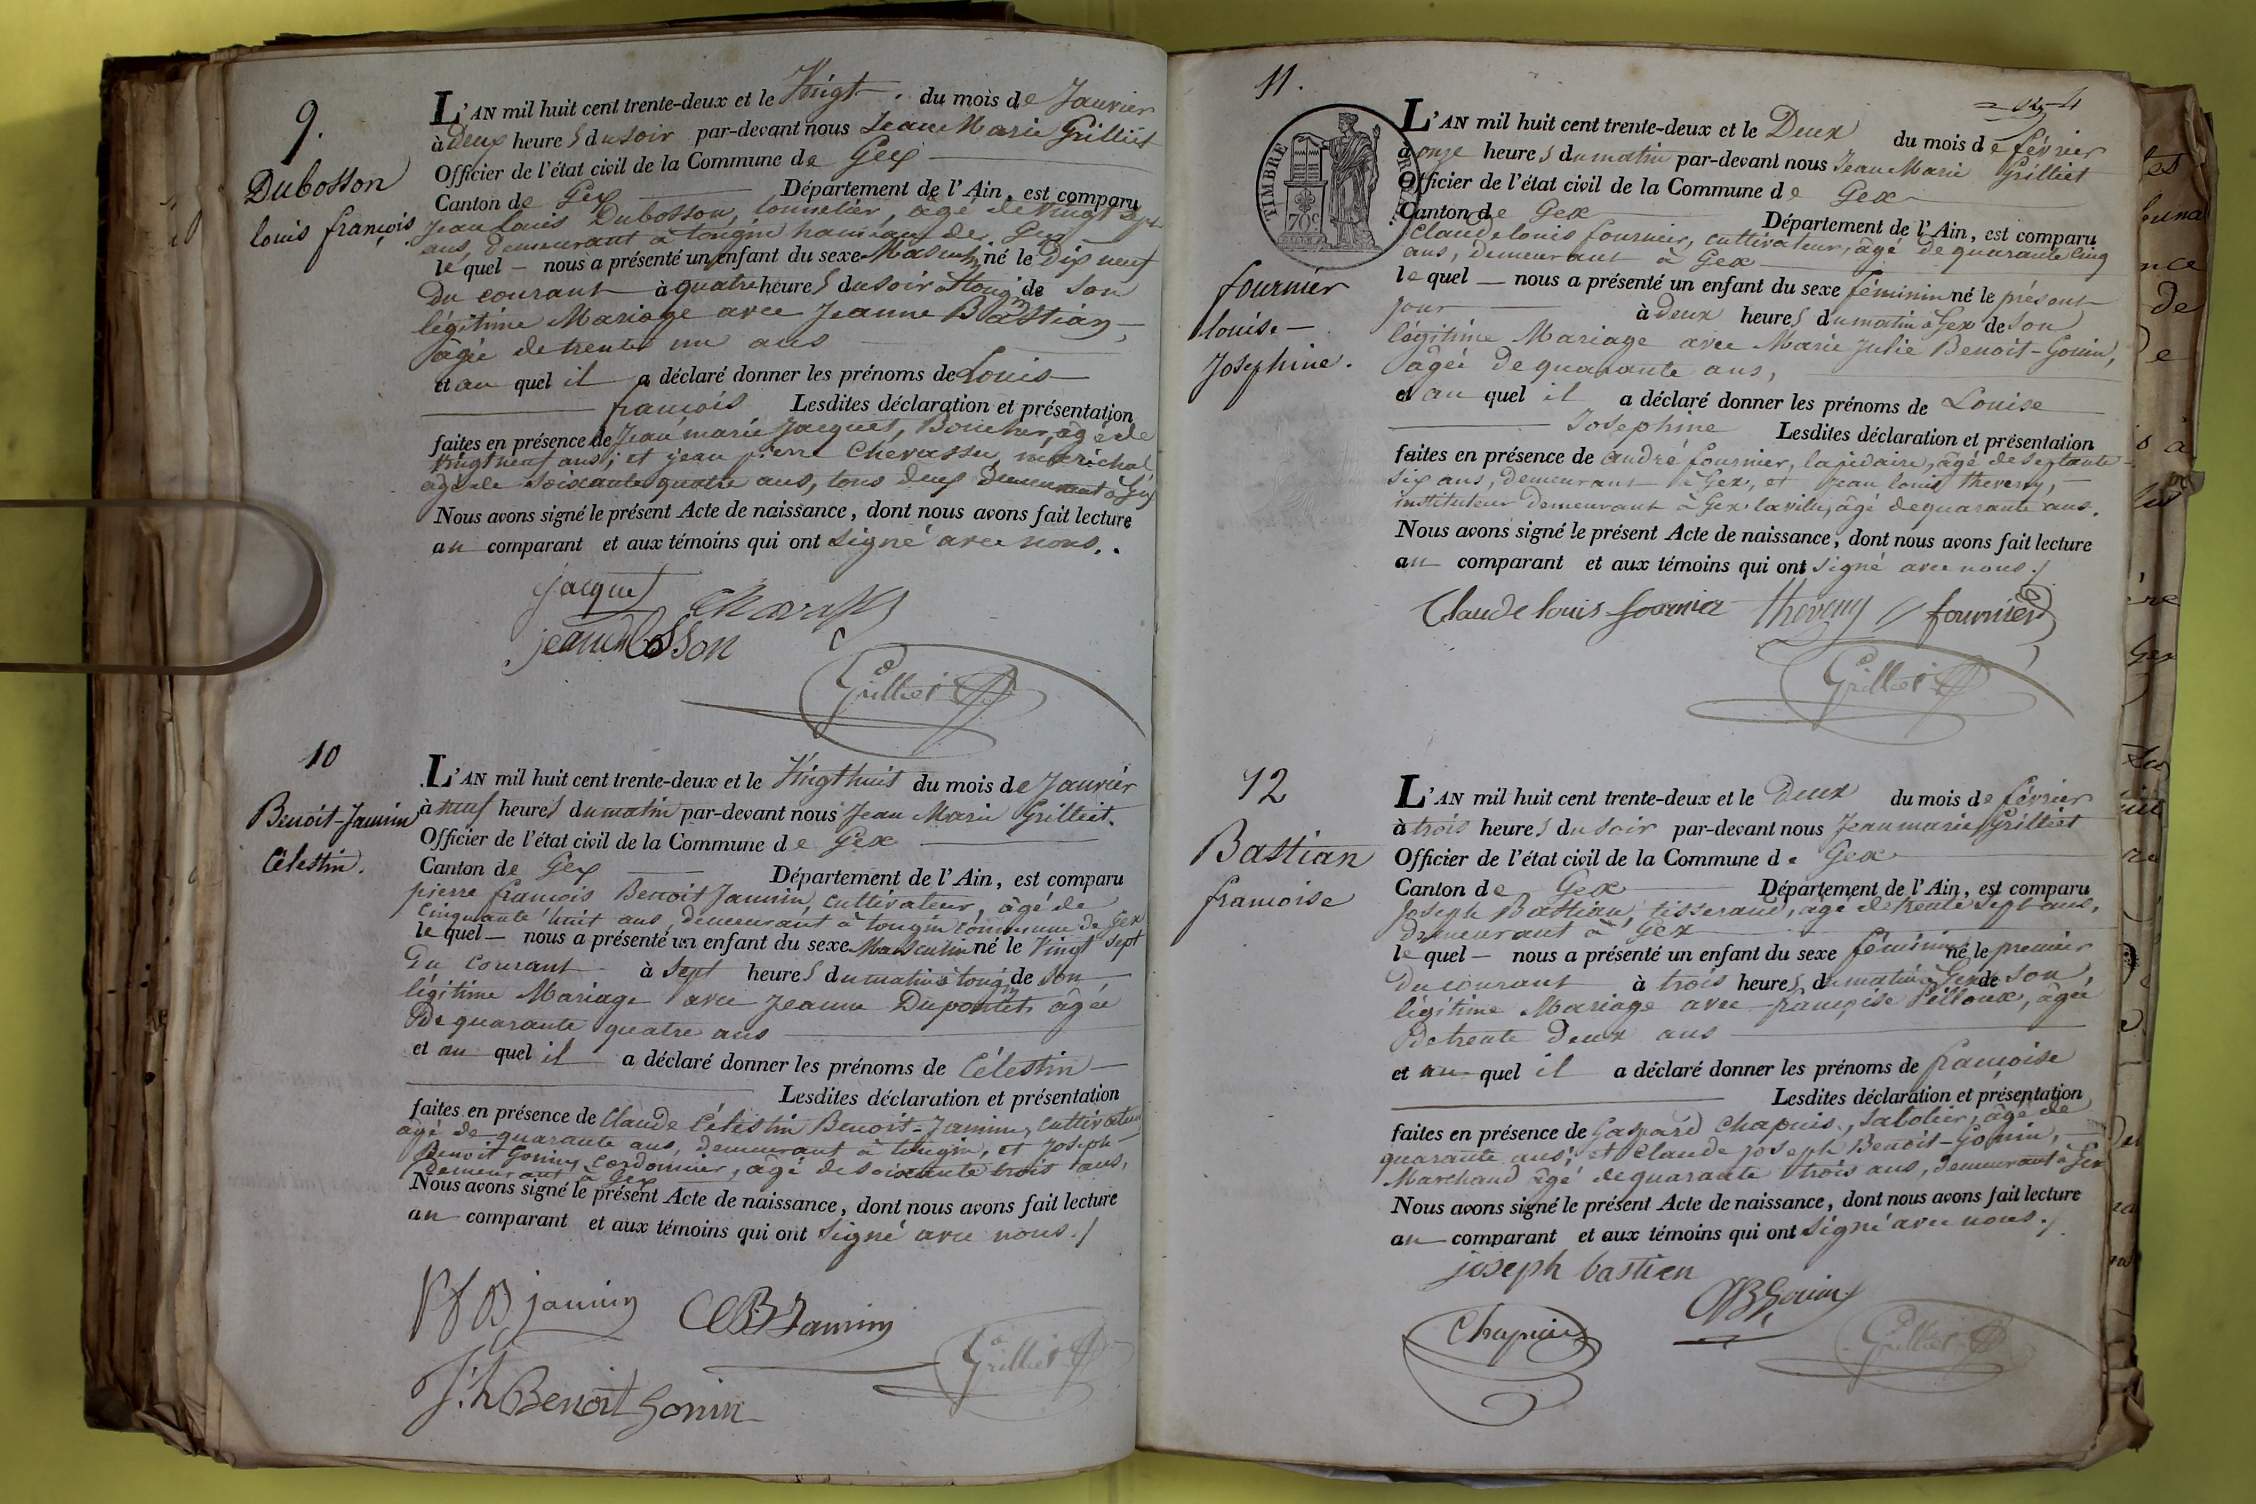 9.
Dubosson
louis françois
L'AN mil huit cent trente-deux et le Vingt. du mois de Janvier
à Deux heures du soir par-devant nous Jean Marie Grilliet
Officier de l'état civil de la Commune de Gex
Canton de Gex Département de l'Ain, est comparu
Jean Louis Dubosson, tonnelier, âgé de vingt sept
ans, demeurant à tougin hameau de Gex
le quel nous a présenté un enfant du sexe Masculin né le Dix neuf
Du courant à quatre heures du soir à tougin de son
légitime Mariage avec Jeanne Bastian,
âgée de trente un ans
et au quel il a déclaré donner les prénoms de Louis
françois Lesdites déclaration et présentation
faites en présence de Jean marie Jacquet, Boucher, âgé de
vingt neuf ans; et jean pierre Chevassu, maréchal,
âgé de soixante quatre ans, tous deux Demeurant à Gex
Nous avons signé le présent Acte de naissance, dont nous avons fait lecture
au comparant et aux témoins qui ont signé avec nous.
jacquet
Grilliet
10
Benoit-Jannin
Célestin.
L'AN mil huit cent trente-deux et le Vingt huit du mois de Janvier
à neuf heures du matin par-devant nous Jean Marie Grilliet.
Officier de l'état civil de la Commune de Gex
Canton de Gex Département de l'Ain, est comparu
pierre françois Benoit Jannin, cultivateur, âgé de
cinquante huit ans, demeurant à tougin commune de Gex
le quel nous a présenté un enfant du sexe Masculin né le Vingt sept
Du courant à sept heures du matin à tougin de son
légitime Mariage avec Jeanne Dupontet, âgée
De quarante quatre ans
et au quel il a déclaré donner les prénoms de Célestin
Lesdites déclaration et présentation
faites en présence de Claude Célestin Benoit-Jannin, cultivateur
âgé de quarante ans, demeurant à tougin, et Joseph
Benoit Gonin, cordonnier, âgé de soixante trois ans,
demeurant à Gex
Nous avons signé le présent Acte de naissance, dont nous avons fait lecture
au comparant et aux témoins qui ont signé avec nous./
PfB jannin CCBJannin
Grilliet
J.h Benoit Gonin
11.
TIMBRE ROYAL
70c
fournier
louise
Josephine.
L'AN mil huit cent trente-deux et le Deux du mois de février
à onze heures du matin par-devant nous Jean Marie Grilliet
Officier de l'état civil de la Commune de Gex
Canton de Gex Département de l'Ain, est comparu
Claude louis fournier, cultivateur, âgé de quarante cinq
ans, demeurant à Gex
le quel nous a présenté un enfant du sexe féminin né le présent
jour à deux heures du matin à Gex de son
légitime Mariage avec Marie Julie Benoit-Gonin,
âgée de quarante ans,
et au quel il a déclaré donner les prénoms de Louise
Josephine Lesdites déclaration et présentation
faites en présence de andré fournier, lapidaire, âgé de septante
six ans, demeurant à Gex, et Jean louis theveny,
instituteur demeurant à Gex la ville, âgé de quarante ans.
Nous avons signé le présent Acte de naissance, dont nous avons fait lecture
au comparant et aux témoins qui ont signé avec nous./
Claude louis fournier theveny fournier
Grilliet
12
Bastian
francoise
L'AN mil huit cent trente-deux et le Deux du mois de février
à trois heures du soir par-devant nous Jean marie Grilliet
Officier de l'état civil de la Commune de Gex
Canton de Gex Département de l'Ain, est comparu
Joseph Bastian, tisserand, âgé de trente sept ans,
demeurant à Gex
le quel nous a présenté un enfant du sexe féminin né le premier
Du courant à trois heures du matin à Gex de son
légitime Mariage avec françoise Pelloux, âgée
de trente Deux ans
et au quel il a déclaré donner les prénoms de francoise
Lesdites déclaration et présentation
faites en présence de Gaspard Chapuis, sabotier, âgé de
quarante ans; et Claude Joseph Benoit-Gonin,
Marchand âgé de quarante trois ans, demeurant à Gex
Nous avons signé le présent Acte de naissance, dont nous avons fait lecture
au comparant et aux témoins qui ont signé avec nous./
joseph bastien
Chapuis
Grilliet